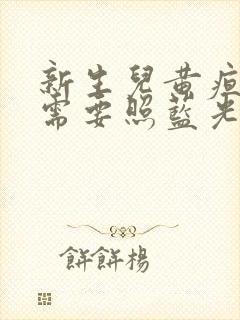 新生兒黃疸
需要照藍光
餅餅楊